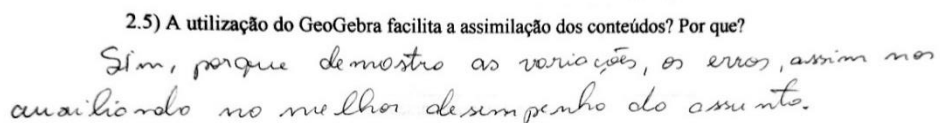 2.5) A utilização do GeoGebra facilita a assimilação dos conteúdos? Por que?
Sim, porque demostra as variações, os erros, assim nos
auxiliando no melhor desempenho do assunto.